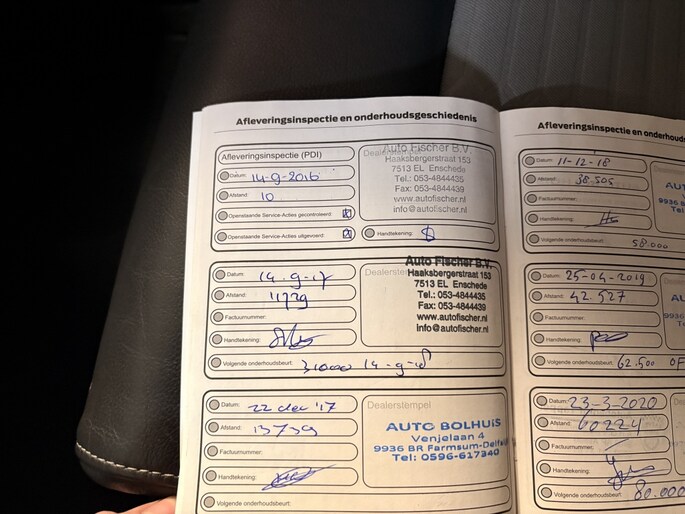 Afleveringsinspectie en onderhoudsgeschiedenis
Afleveringsinspectie (PDI)
Datum: 14-9-2016
Afstand: 10
Openstaande Service-Acties gecontroleerd:
Openstaande Service-Acties uitgevoerd:
Dealerstempel
Auto Fischer B.V.
Haaksbergerstraat 153
7513 EL Enschede
Tel.: 053-4844435
Fax: 053-4844439
www.autofischer.nl
info@autofischer.nl
Handtekening:
Datum: 14-9-17
Afstand:
Factuurnummer:
Handtekening:
Dealerstempel
Auto Fischer B.V.
Haaksbergerstraat 153
7513 EL Enschede
Tel.: 053-4844435
Fax: 053-4844439
www.autofischer.nl
info@autofischer.nl
Volgende onderhoudsbeurt: 31000 14-9-18
Datum: 22 dec '17
Afstand: 13739
Factuurnummer:
Handtekening:
Dealerstempel
AUTO BOLHUIS
Venjelaan 4
9936 BR Farmsum-Delfzi
Tel: 0596-617340
Volgende onderhoudsbeurt:
Afleveringsinspectie en onderhouds
Datum: 11-12-18
Afstand: 38.505
Factuurnummer:
Handtekening:
AU
9936 B
Volgende onderhoudsbeurt: 58.000
Datum: 25-04-2019
Afstand: 42.527
Factuurnummer:
Handtekening:
Volgende onderhoudsbeurt: 62.500 OF
Datum: 23-3-2020
Afstand: 60224
Factuurnummer:
Handtekening:
AU
9936
Volgende onderhoudsbeurt: 80.000